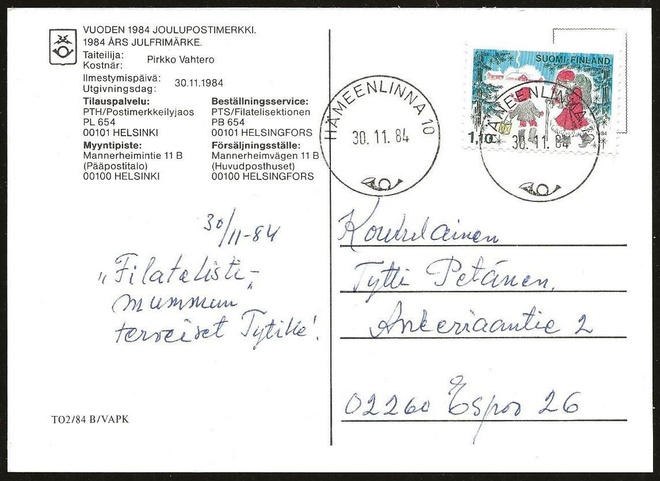 VUODEN 1984 JOULUPOSTIMERKKI.
1984 ÅRS JULFRIMÄRKE.
Taiteilija:
Kostnär: Pirkko Vahtero
Ilmestymispäivä:
Utgivningsdag: 30.11.1984
Tilauspalvelu:
PTH/Postimerkkeilyjaos
PL 654
00101 HELSINKI
Beställningsservice:
PTS/Filatelisektionen
PB 654
00101 HELSINGFORS
Myyntipiste:
Mannerheimintie 11 B
(Pääpostitalo)
00100 HELSINKI
Försäljningsställe:
Mannerheimvägen 11 B
(Huvudposthuset)
00100 HELSINGFORS
HÄMEENLINNA 10
30.11.84
SUOMI-FINLAND
1,10
HÄMEENLINNA 10
30.11.84
30/11-84
"Filatelisti-
mumman"
terveiset Tytille!
Tytti Petänen.
Ankeriaantie 2
02260 Espoo 26
TO2/84 B/VAPK